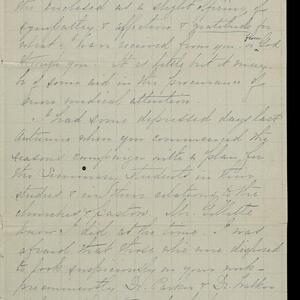 the enclosed as a slight offering of
sympathy & affection & gratitude for
what I have received from you, or from God
through you. It is little but it may
be of some aid in the procurance of
more medical attention.
I had some depressed days last
autumn when you commenced the
season's campaign with a plan for
the Seminary students in their
studies & in their relations to the
churches, & Easton. Mr. Gillette
knew I did at the time. I was
afraid that those who were disposed
to look suspiciously on your work -
preeminently Dr. Parker & Dr.